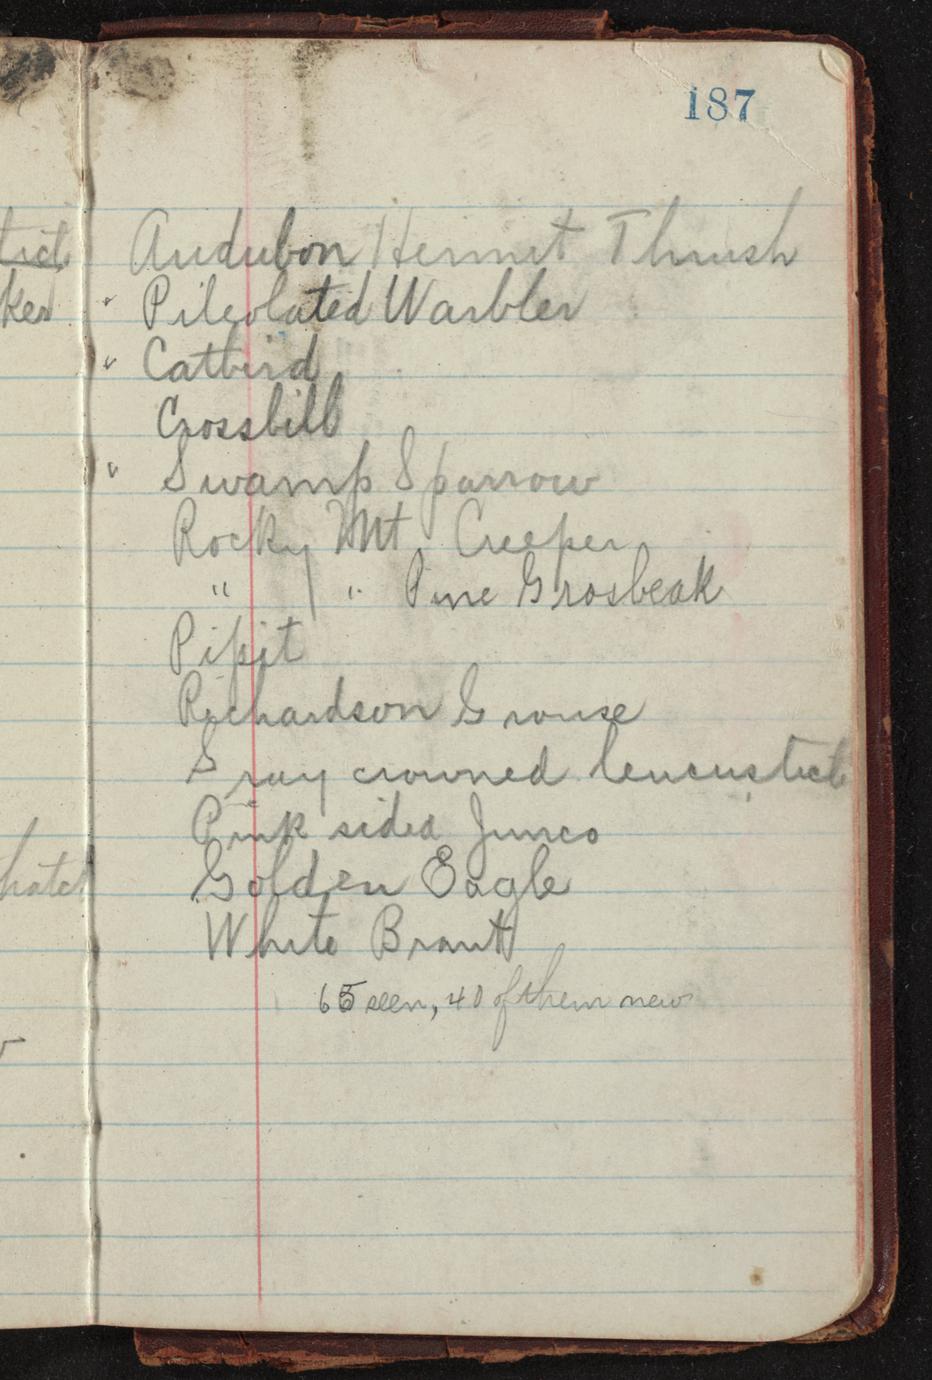 187
Audubon Hermit Thrush
" Pileolated Warbler
" Catbird
Crossbill
" Swamp Sparrow
Rocky Mt. Creeper
" " Pine Grosbeak
Pipit
Richardson Grouse
Gray crowned leucosticte
Pink sided Junco
Golden Eagle
White Brant
65 seen, 40 of them new